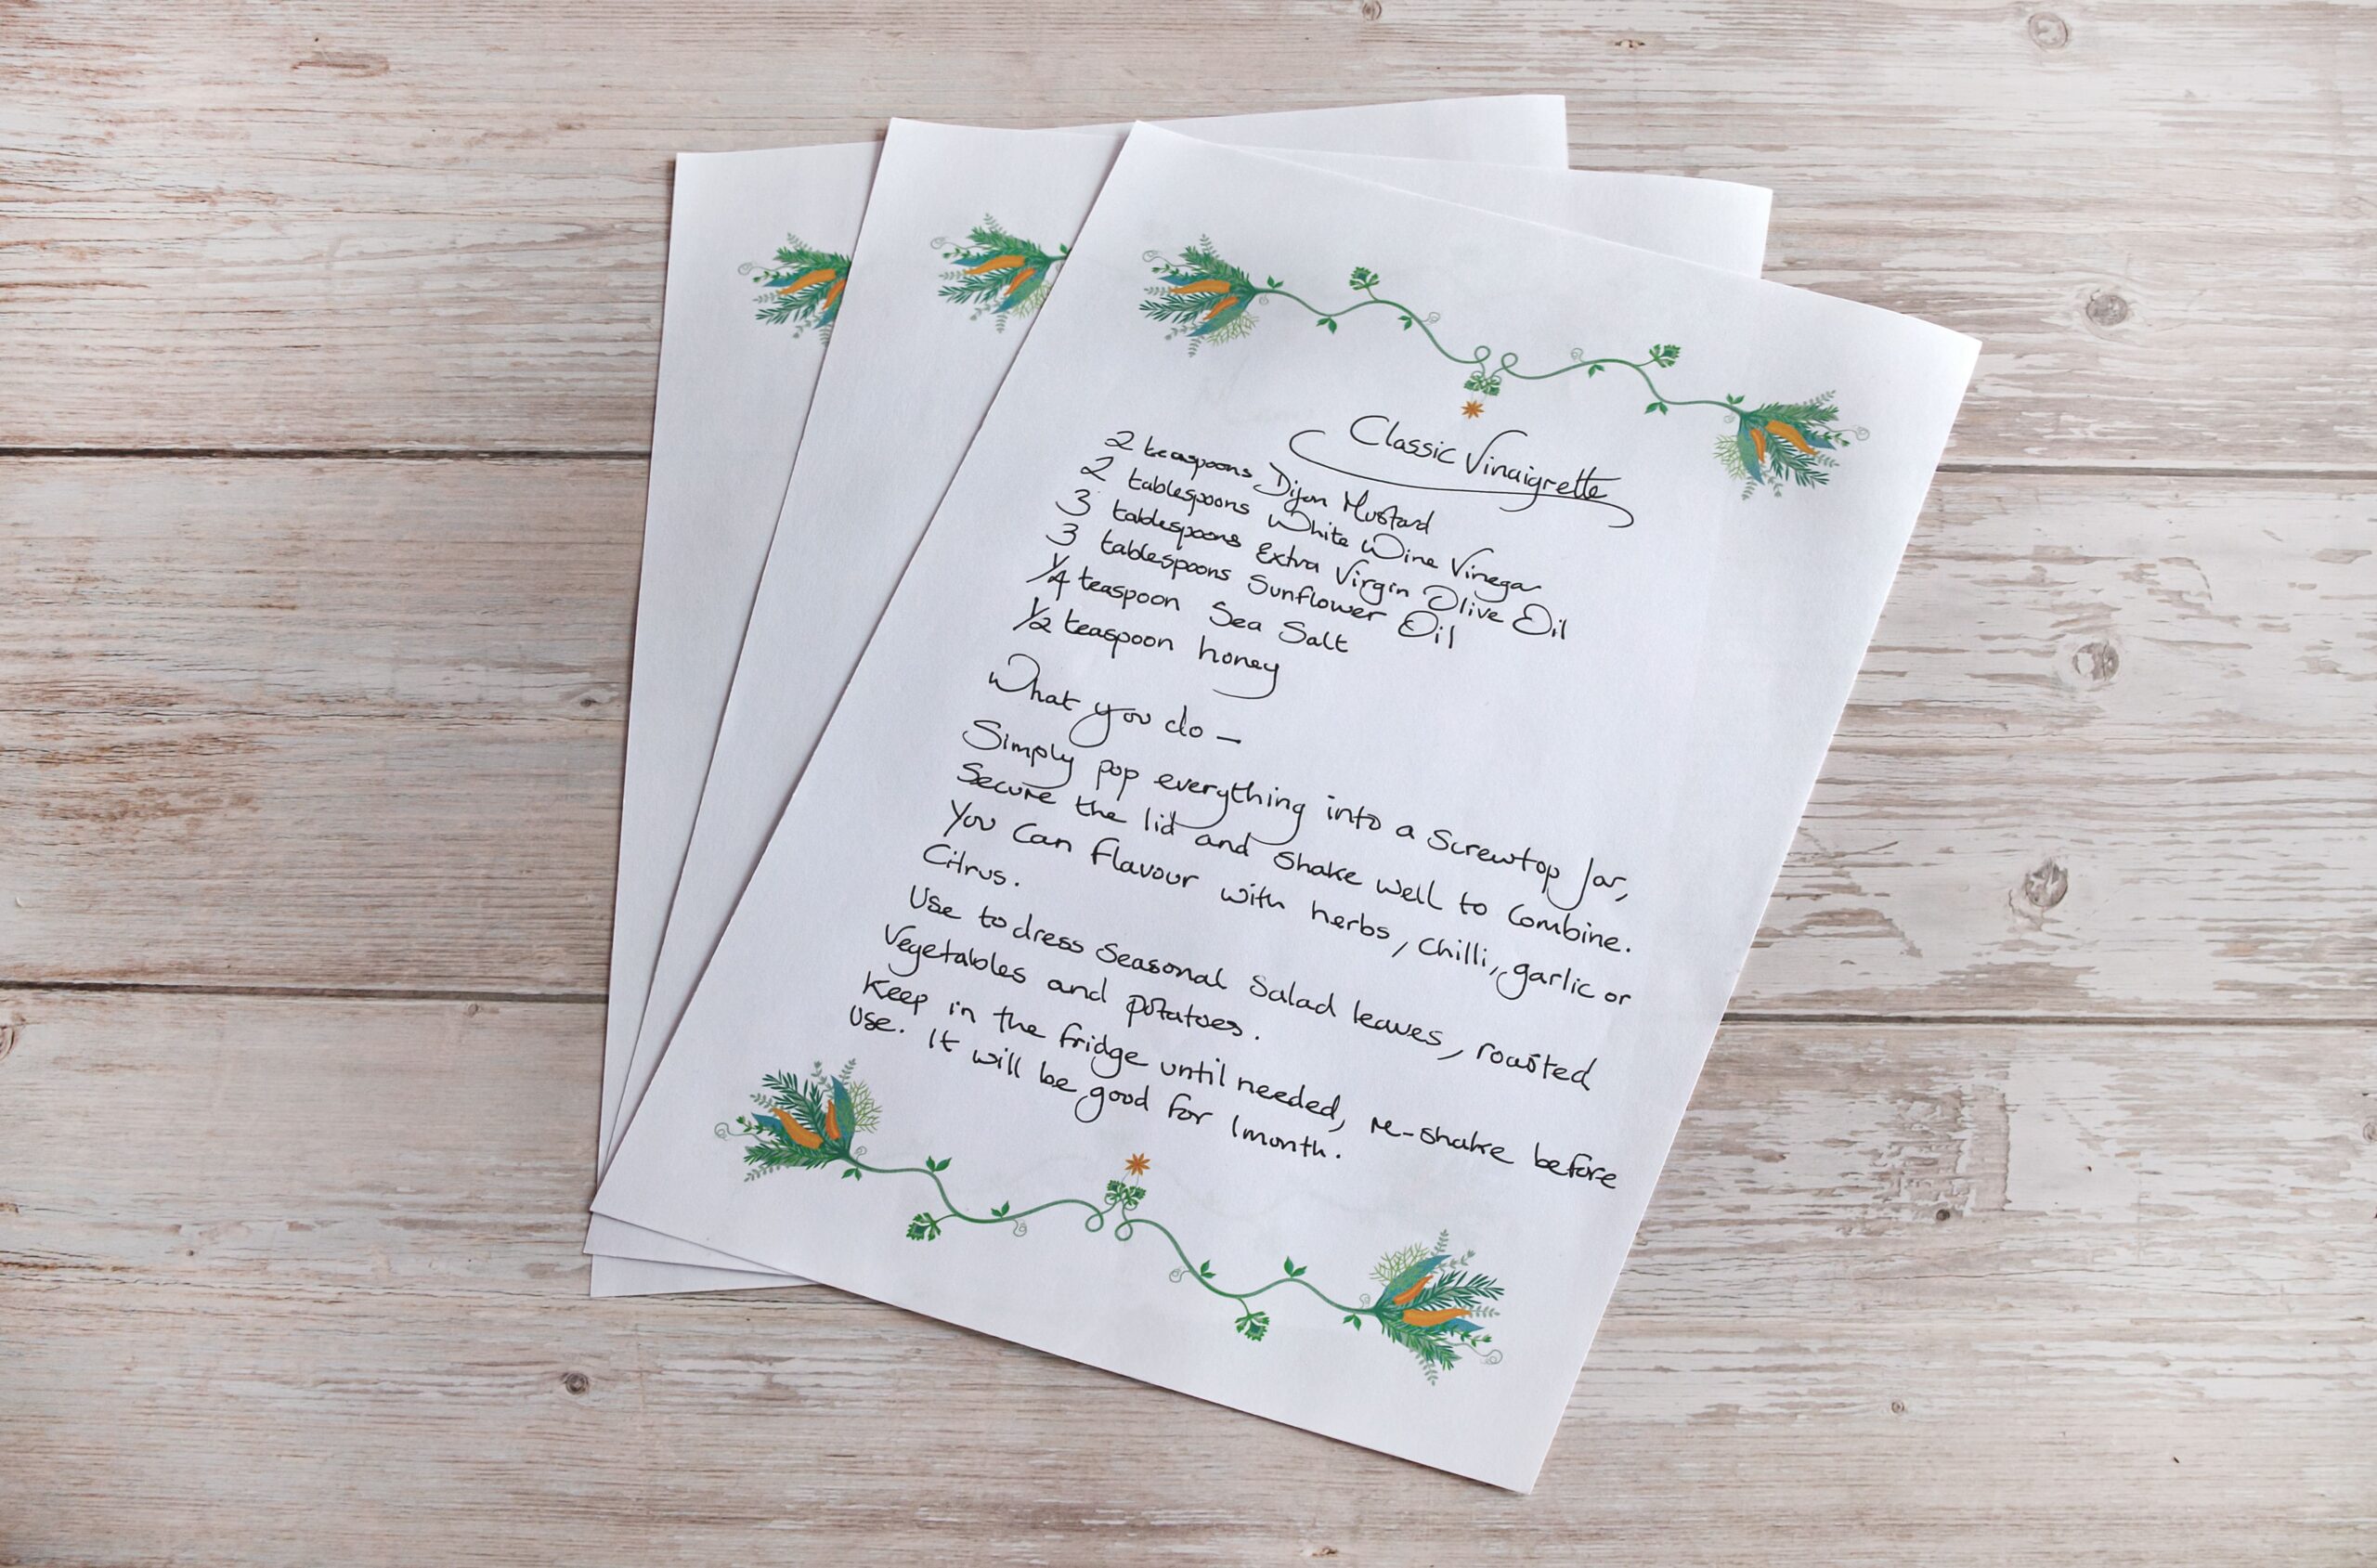 Classic Vinaigrette
2 teaspoons Dijon Mustard
2 tablespoons White Wine Vinegar
3 tablespoons Extra Virgin Olive Oil
3 tablespoons Sunflower Oil
1/4 teaspoon Sea Salt
1/2 teaspoon honey
What you do -
Simply pop everything into a screwtop jar,
Secure the lid and shake well to combine.
You can flavour with herbs, chilli, garlic or
Citrus.
Use to dress seasonal salad leaves, roasted
vegetables and potatoes.
Keep in the fridge until needed, re-shake before
use. It will be good for 1 month.